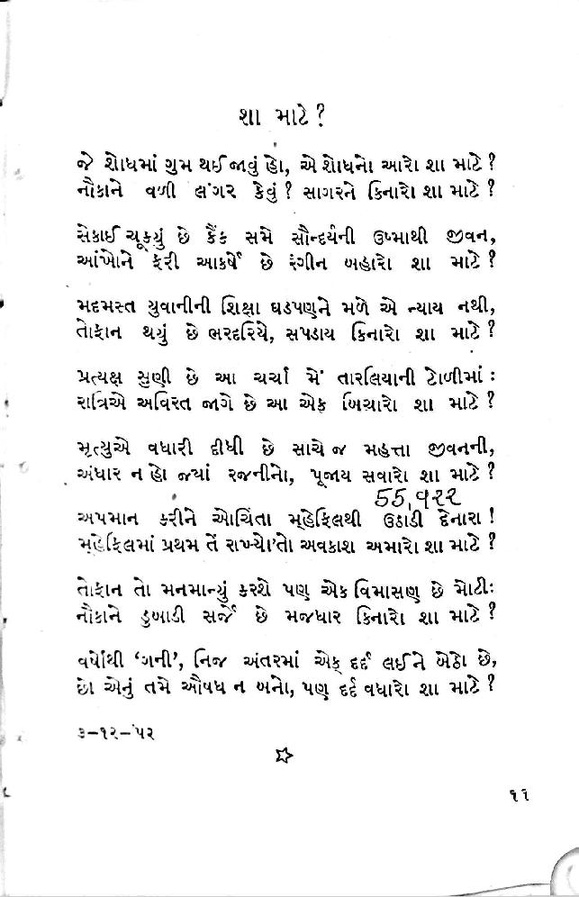 શા માટે ?
જે શોધમાં ગુમ થઈ જાવું હો, એ શોધનો આરો શા માટે ?
નૌકાને વળી લંગર કેવું ? સાગરને કિનારો શા માટે ?
સેકાઈ ચૂક્યું છે કૈંક સમે સૌન્દર્યની ઉષ્માથી જીવન,
આંખોને ફરી આકર્ષે છે રંગીન બહારો શા માટે ?
મદમસ્ત યુવાનીની શિક્ષા ઘડપણુને મળે એ ન્યાય નથી,
તોફાન થયું છે ભરદરિયે, સપડાય કિનારો શા માટે ?
પ્રત્યક્ષ સુણી છે આ ચર્ચા મેં તારલિયાની ટોળીમાં :
રાત્રિએ અવિરત જાગે છે આ એક બિચારો શા માટે ?
મૃત્યુએ વધારી દીધી છે સાચે જ મહત્તા જીવનની,
અંધાર ન હો જ્યાં રજનીનો, પૂજાય સવારો શા માટે ?
55,૧૨૨
અપમાન કરીને ઓચિંતા મ્હેફિલથી ઉઠાડી દેનારા !
મ્હેફિલમાં પ્રથમ તેં રાખ્યો'તો અવકાશ અમારો શા માટે ?
તોફાન તો મનમાન્યું કરશે પણ એક વિમાસણ છે મોટીઃ
નૌકાને ડુબાડી સર્જે છે મજધાર કિનારો શા માટે ?
વર્ષોથી ‘ગની’, નિજ અંતરમાં એક દર્દ લઈને બેઠો છે,
છો એનું તમે ઔષધ ન બનો, પણ દર્દ વધારો શા માટે ?
૩–૧૨–'૫૨
૧૧